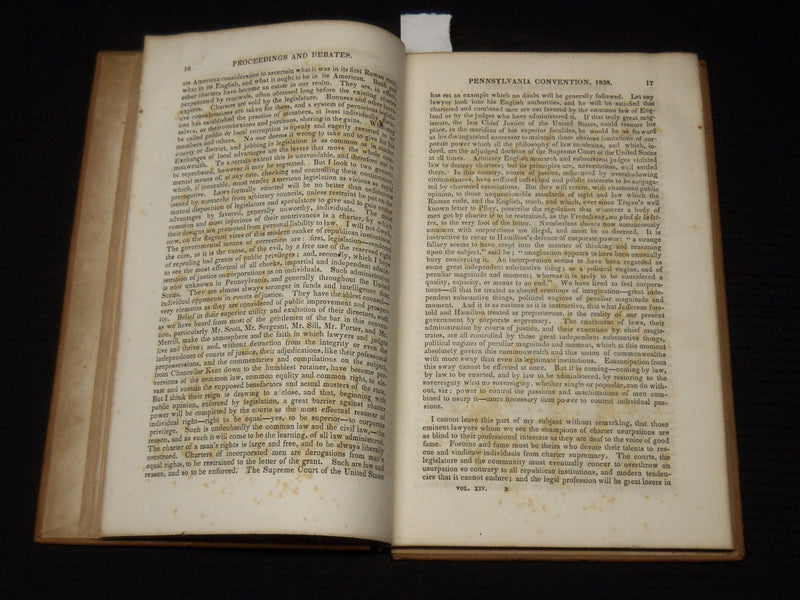 16
PROCEEDINGS AND DEBATES.
American consideration to ascertain what it was in its first Roman
what in its English, and what it ought to be in its American.
other charters have become an estate in our realm. They are, in
perpetuated by renewals, often obtained long before the existing charter
expires. Charters are sold by the legislature. Bonuses and other
considerations are taken for them, and a system of pernicious
tion has established the practice of members, at least individually,
selves, or their connexions and partizans, sharing in the gains.
be called public or local corruption is openly and eagerly resorted to by
members and others. No one deems it wrong to take and to give for his
county or district, and jobbing in legislation is as common as
Exchanges of local advantages are the levers that move the whole
monwealth. To a certain extent this is unavoidable, and therefore not to
be reprobated, however it may be regretted. But I look to two
mental means of, at any rate, checking and controlling their
which, if incurable, must render American legislation as vicious as royal
prerogative. Laws formally enacted will be no better than orders
by monarch from arbitrary councils, unless restraint be put on the
mutual disposition of legislators and speculators to give and to gain undue
advantages by favored, generally unworthy, individuals. The most
common and most injurious of their contrivances is a charter, by which
their designs are protected from personal liability to law. I will not dwell
now, on the flagrant vices of this modern canker of republican institutions.
The governmental means of correction are: first, legislation—
the cure, as it is the cause, of the evil, by a free use of the reserved right
of repealing bad grants of public privileges; and, secondly, which I look
to see the most effectual of all checks, impartial and independent adminis-
tration of justice on corporations as on individuals. Such administration
is now unknown in Pennsylvania, and generally throughout the United
States. They are always stronger in funds and intelligence than
individual opponents in courts of justice. They have the ablest counsel,
very elements as they are considered of public improvement and prosper-
ity. Belief in their superior utility and exaltation of their directors, such
as we have heard from most of the gentlemen of the bar in this conven-
tion, particularly Mr. Scott, Mr. Sergeant, Mr. Sill, Mr. Porter, and Mr.
Merrill, make the atmosphere and the faith in which lawyers and judges
live and thrive; and, without detraction from the integrity or even the
independence of courts of justice, their adjudications, like their pofessional
prepossessions, and the commentaries and compilations on the subject,
from Chancellor Kent down to the humblest retainer, have become per-
versions of the common law, common equity and common right, to ele-
vate and sustain the supposed benefactors and actual masters of the state.
But I think their reign is drawing to a close, and that, beginning with
public opinion, enforced by legislation, a great barrier against charter
power will be completed by the courts as the most effectual restorer of
individual right—right to be equal—yes, to be superior—to corporate
privilege. Such is undoubtedly the common law and the civil law—the
reason, and as such it will come to be the learning, of all law administered.
The charter of a man's rights is large and free, and to be always liberally
construed. Charters of incorporated men are derogations from man's
equal rights, to be restrained to the letter of the grant. Such are law and
reason, and so to be enforced. The Supreme Court of the United States
PENNSYLVANIA CONVENTION, 1838.
17
has set an example which no doubt will be generally followed. Let any
lawyer look into his English authorities, and he will be satisfied that
chartered and combined men are not favored by the common law of Eng-
land or by the judges who have administered it. If that truly great mag-
istrate, the late Chief Justice of the United States, could resume his
place, in the meridian of his superior faculties, he would be as forward
as his distinguished successor to maintain those obvious limitations of cor-
porate power which all the philosophy of law inculcates, and which, in-
deed, are the adjudged doctrine of the Supreme Court of the United States
at all times. Arbitrary English monarch and subservient judges violated
law to destroy charters; but its principles are, nevertheless, well settled
there. In this country, courts of justice, influenced by overshadowing
circumstances, have suffered individual and public interests to be subjuga-
ted by chartered associations. But they will return, with chartered public
opinion, to those unquestionable standards of right and law which the
Roman code, and the English, teach, and which, ever since Trajan's well
known letter to Pliny, prescribe the regulation that whatever a body of
men got by charter is to be restrained, as the French say, au pied de la let-
tre, to the very foot of the letter. Numberless abuses now unnoticed
common with corporations are illegal, and must be so deemed. It is
instructive to recur to Hamilton's defence of corporate power; "a strange
fallacy seems to have crept into the manner of thinking and reasoning
upon the subject," said he; "imagination appears to have been unusually
busy concerning it. An incorporation seems to have been regarded as
some great independent substantive thing; as a political engine, end of
peculiar magnitude and moment; whereas it is truly to be considered a
quality, capacity, or means to an end." We have lived to feel corpora-
tions—all that he treated as absurd creations of imagination—great inde-
pendent substantive things, political engines of peculiar magnitude and
moment. And it is as curious as it is instructive, that what Jefferson fore-
told and Hamilton treated as preposterous, is the reality of our present
government by corporate supremacy. The enactment of laws, their
administration by courts of justice, and their execution by chief magis-
trates, are all controlled by these great independent substantive things,
political engines of peculiar magnitude and moment, which at this moment
absolutely govern this commonwealth and this union of commonwealths
with more sway than even its legitimate institutions. Emancipation from
this sway cannot be effected at once. But it is coming—coming by law,
by law to be enacted, and by law to be administered, by restoring to the
sovereignty what no sovereignty, whether single or popular, can do with-
out, viz: power to control the passions and machinations of men com-
bined to usurp it—more necessary than power to control individual pas-
sions.
I cannot leave this part of my subject without remarking, that those
eminent lawyers whom we see the champions of charter usurpations are
as blind to their professional interests as they are deaf to the voice of good
fame. Fortune and fame must be theirs who devote their talents to res-
cue and vindicate individuals from charter supremacy. The courts, the
legislature and the community must eventually concur to overthrow an
usurpation so contrary to all republican institutions, and modern tenden-
cies that it cannot endure; and the legal profession will be great losers in
VOL. XIV. B